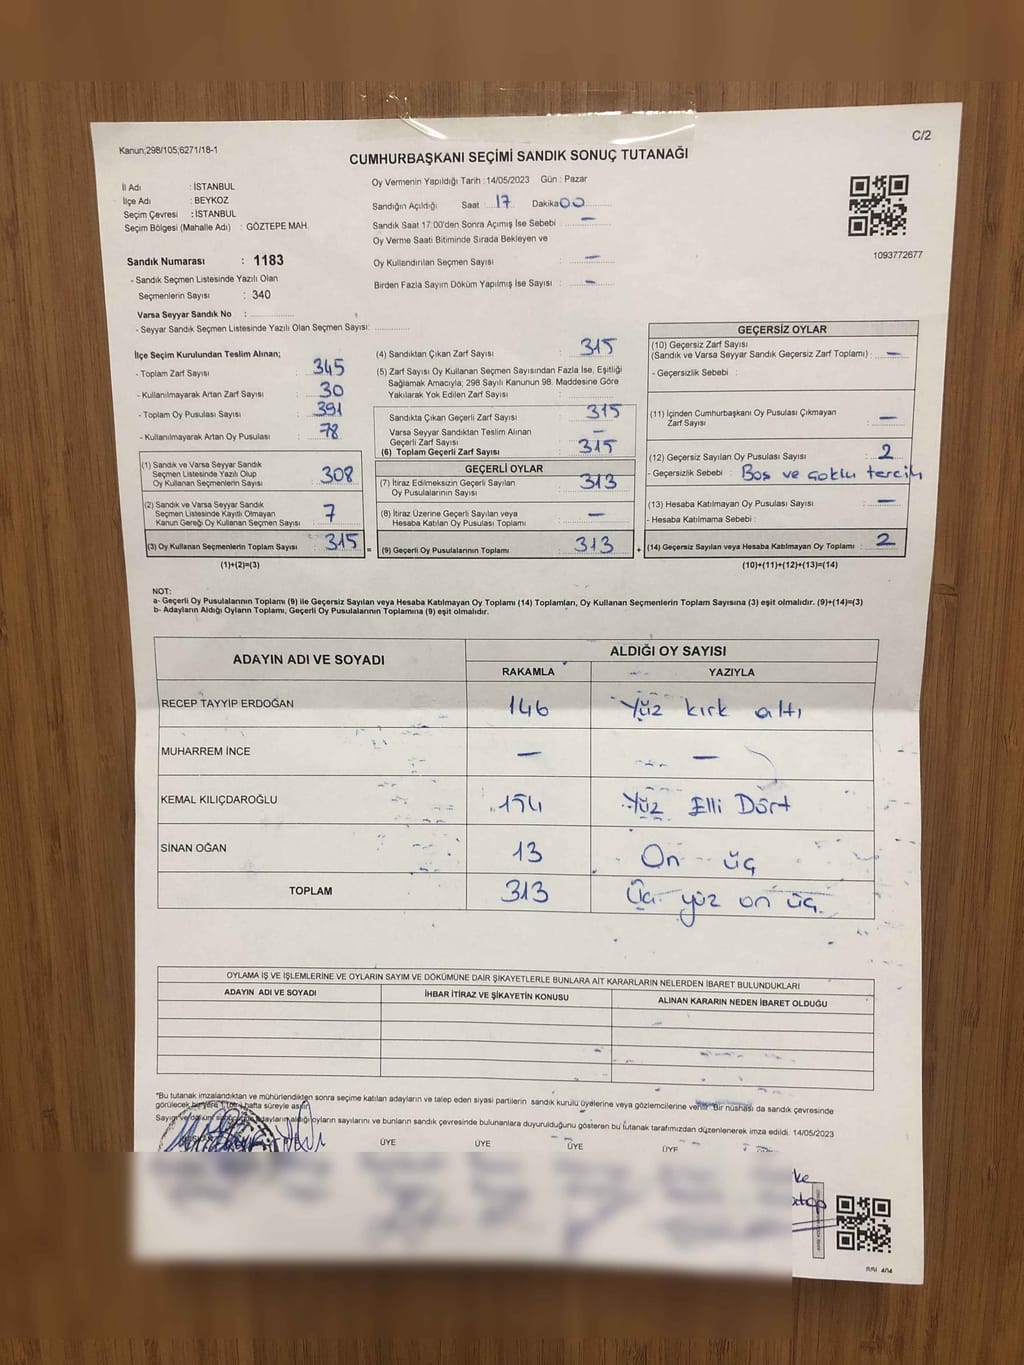 Kanun;298/105;6271/18-1
C/2
CUMHURBAŞKANI SEÇİMİ SANDIK SONUÇ TUTANAĞI
İl Adı : İSTANBUL
İlçe Adı : BEYKOZ
Seçim Çevresi : İSTANBUL
Seçim Bölgesi (Mahalle Adı) : GÖZTEPE MAH.
Sandık Numarası : 1183
- Sandık Seçmen Listesinde Yazılı Olan
Seçmenlerin Sayısı : 340
Varsa Seyyar Sandık No :
- Seyyar Sandık Seçmen Listesinde Yazılı Olan Seçmen Sayısı:
Oy Vermenin Yapıldığı Tarih :14/05/2023 Gün : Pazar
Sandığın Açıldığı Saat 17 Dakika 00
Sandık Saat 17:00'den Sonra Açımış İse Sebebi : —
Oy Verme Saati Bitiminde Sırada Bekleyen ve
Oy Kullandırılan Seçmen Sayısı : —
Birden Fazla Sayım Döküm Yapılmış İse Sayısı : —
1093772677
İlçe Seçim Kurulundan Teslim Alınan;
- Toplam Zarf Sayısı : 345
- Kullanılmayarak Artan Zarf Sayısı : 30
- Toplam Oy Pusulası Sayısı : 391
- Kullanılmayarak Artan Oy Pusulası : 78
(1) Sandık ve Varsa Seyyar Sandık
Seçmen Listesinde Yazılı Olup
Oy Kullanan Seçmenlerin Sayısı : 308
(2) Sandık ve Varsa Seyyar Sandık
Seçmen Listesinde Kayıtlı Olmayan
Kanun Gereği Oy Kullanan Seçmen Sayısı : 7
(3) Oy Kullanan Seçmenlerin Toplam Sayısı : 315 =
(1)+(2)=(3)
(4) Sandıktan Çıkan Zarf Sayısı : 315
(5) Zarf Sayısı Oy Kullanan Seçmen Sayısından Fazla İse, Eşitliği
Sağlamak Amacıyla; 298 Sayılı Kanunun 98. Maddesine Göre
Yakılarak Yok Edilen Zarf Sayısı :
Sandıkta Çıkan Geçerli Zarf Sayısı : 315
Varsa Seyyar Sandıktan Teslim Alınan
Geçerli Zarf Sayısı : —
(6) Toplam Geçerli Zarf Sayısı : 315
GEÇERLİ OYLAR
(7) İtiraz Edilmeksizin Geçerli Sayılan
Oy Pusulalarının Sayısı : 313
(8) İtiraz Üzerine Geçerli Sayılan veya
Hesaba Katılan Oy Pusulası Toplamı : —
(9) Geçerli Oy Pusulalarının Toplamı : 313 +
GEÇERSİZ OYLAR
(10) Geçersiz Zarf Sayısı
(Sandık ve Varsa Seyyar Sandık Geçersiz Zarf Toplamı) : —
- Geçersizlik Sebebi :
(11) İçinden Cumhurbaşkanı Oy Pusulası Çıkmayan
Zarf Sayısı : —
(12) Geçersiz Sayılan Oy Pusulası Sayısı : 2
- Geçersizlik Sebebi : Boş ve Çoklu tercih
(13) Hesaba Katılmayan Oy Pusulası Sayısı : —
- Hesaba Katılmama Sebebi :
(14) Geçersiz Sayılan veya Hesaba Katılmayan Oy Toplamı : 2
(10)+(11)+(12)+(13)=(14)
NOT:
a- Geçerli Oy Pusulalarının Toplamı (9) ile Geçersiz Sayılan veya Hesaba Katılmayan Oy Toplamı (14) Toplamları, Oy Kullanan Seçmenlerin Toplam Sayısına (3) eşit olmalıdır. (9)+(14)=(3)
b- Adayların Aldığı Oyların Toplamı, Geçerli Oy Pusulalarının Toplamına (9) eşit olmalıdır.
ADAYIN ADI VE SOYADI
ALDIĞI OY SAYISI
RAKAMLA YAZIYLA
RECEP TAYYİP ERDOĞAN 146 Yüz kırk altı
MUHARREM İNCE — —
KEMAL KILIÇDAROĞLU 154 Yüz Elli Dört
SİNAN OĞAN 13 On üç
TOPLAM 313 Üç yüz on üç
OYLAMA İŞ VE İŞLEMLERİNE VE OYLARIN SAYIM VE DÖKÜMÜNE DAİR ŞİKAYETLERLE BUNLARA AİT KARARLARIN NELERDEN İBARET BULUNDUKLARI
ADAYIN ADI VE SOYADI İHBAR İTİRAZ VE ŞİKAYETİN KONUSU ALINAN KARARIN NEDEN İBARET OLDUĞU
*Bu tutanak imzalandıktan ve mühürlendikten sonra seçime katılan adayların ve talep eden siyasi partilerin sandık kurulu üyelerine veya gözlemcilerine verilir. Bir nüshası da sandık çevresinde
görülecek bir yere 1 (bir) hafta süreyle asılır.
adayların aldığı oyların sayılarını ve bunların sandık çevresinde bulunanlara duyurulduğunu gösteren bu tutanak tarafımızdan düzenlenerek imza edildi. 14/05/2023
ÜYE ÜYE ÜYE ÜYE